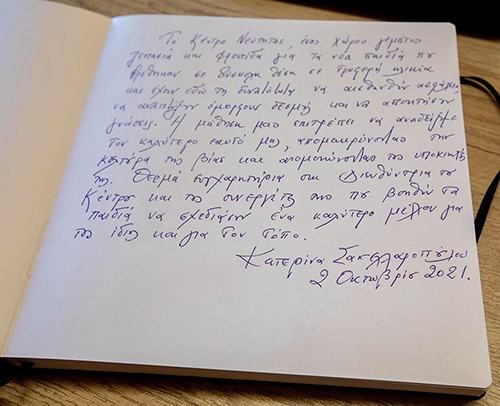 Το Κέντρο Νεότητας, ένας χώρος γεμάτος
ζεστασιά και φροντίδα για τα νέα παιδιά που
βρέθηκαν σε δύσκολη θέση σε τρυφερή ηλικία
και έχουν εδώ τη δυνατότητα να αισθανθούν ασφάλεια
να αναπτύξουν όμορφους δεσμούς και να αποκτήσουν
γνώσεις. Η μάθηση μας επιτρέπει να αναδείξουμε
τον καλύτερο εαυτό μας, απομακρύνοντας την
της βίας και απομονώνοντας τους υποκινητές
της. Θερμά συγχαρητήρια στη Διευθύντρια του
Κέντρου και τους συνεργάτες της που βοηθούν τα
παιδιά να σχεδιάσουν ένα καλύτερο μέλλον για
τους ίδιους και για τον τόπο.
Κατερίνα Σακελλαροπούλου
2 Οκτωβρίου 2021.